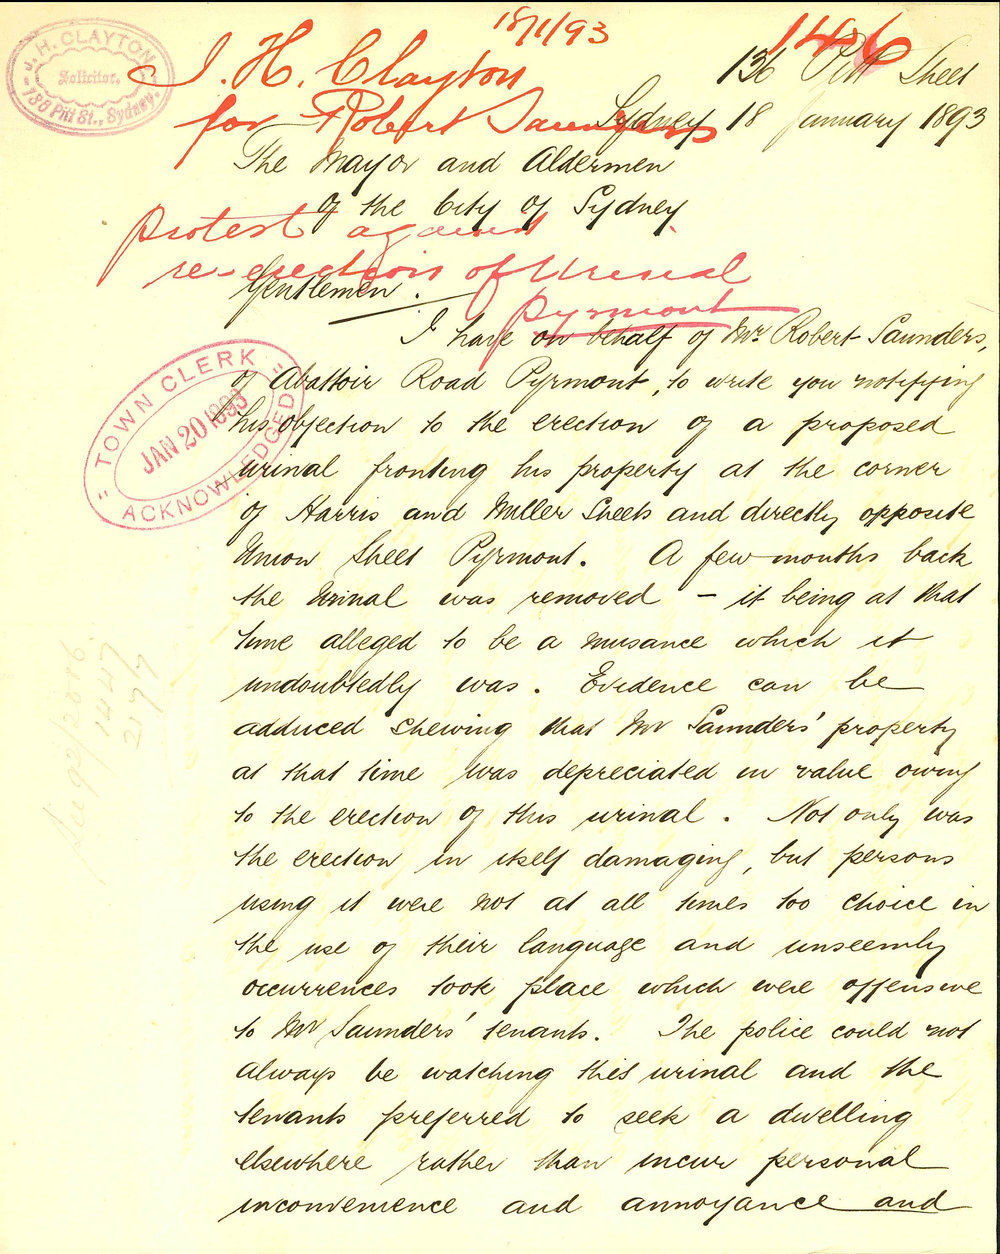 18/1/93
1426
J. H. CLAYTON,
Solicitor,
136 Pitt St., Sydney.
J. H. Clayton
for Robert Saunders
136 Pitt Street
Sydney 18 January 1893
The Mayor and Aldermen
of the City of Sydney.
Protest against
re-erection of Urinal
Pyrmont
Gentlemen.
I have on behalf of Mr. Robert Saunders,
of Abattoir Road Pyrmont, to write you notifying
his objection to the erection of a proposed
urinal fronting his property at the corner
of Harris and Miller Streets and directly opposite
Union Street Pyrmont. A few months back
the Urinal was removed - it being at that
time alleged to be a nuisance which it
undoubtedly was. Evidence can be
adduced shewing that Mr Saunders' property
at that time was depreciated in value owing
to the erection of this urinal. Not only was
the erection in itself damaging, but persons
using it were not at all times too choice in
the use of their language and unseemly
occurrences took place which were offensive
to Mr Saunders' tenants. The police could not
always be watching this urinal and the
tenants preferred to seek a dwelling
elsewhere rather than incur personal
inconvenience and annoyance and
"TOWN CLERK"
JAN 20 1893
ACKNOWLEDGED
1447
2177